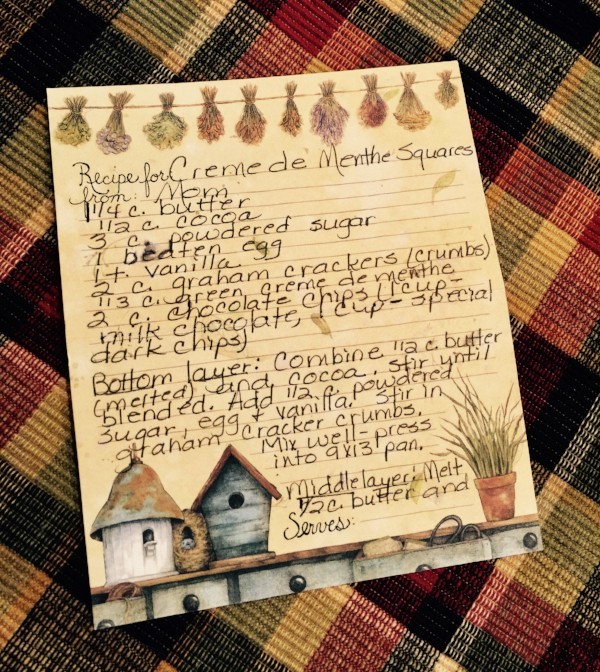 Recipe for Creme de Menthe Squares
from: Mom
1 1/4 c. butter
1/2 c. cocoa
3 c. powdered sugar
1 beaten egg
1 t. vanilla
2 c. graham crackers (crumbs)
1/3 c. green creme de menthe
2 c. chocolate chips (1 cup-
milk chocolate, 1 cup - special
dark chips)
Bottom layer: Combine 1/2 c. butter
(melted) and cocoa. stir until
blended. Add 1/2 c. powdered
sugar, egg + vanilla. stir in
graham cracker crumbs.
Mix well - press
into 9x13 pan.
Middle layer: Melt
1/2 c. butter and
Serves: